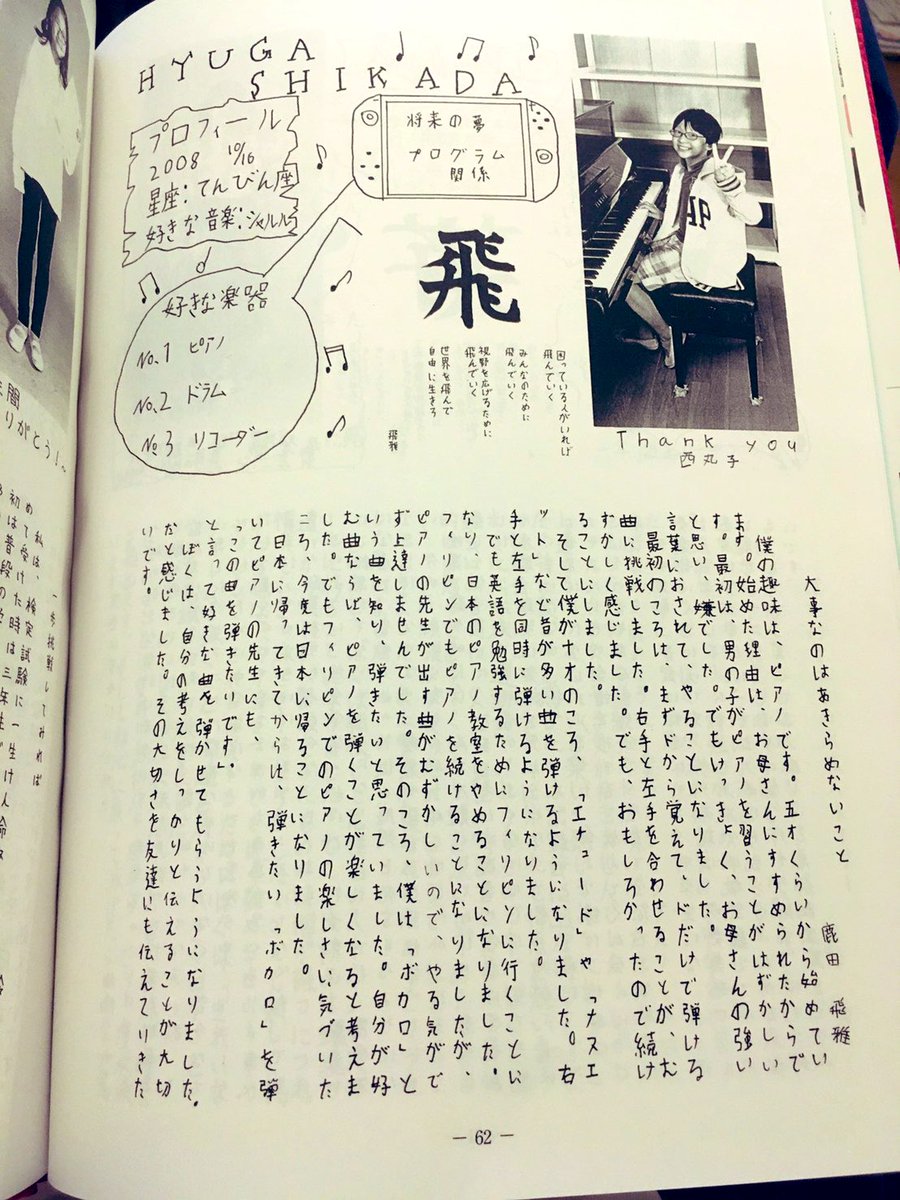 HYUGA
SHIKADA
プロフィール
2008 10/16
星座:てんびん座
好きな音楽:シャルル
将来の夢
プログラム
関係
好きな楽器
No.1 ピアノ
No.2 ドラム
No.3 リコーダー
飛
困っている人がいれば
飛んでいく
みんなのために
飛んでいく
視野を広げるために
飛んでいく
世界を飛んで
自由に生きる
飛雅
Thank you
西丸子
大事なのはあきらめないこと
鹿田 飛雅
僕の趣味は、ピアノです。五才くらいから始めてい
ます。始めた理由は、お母さんにすすめられたからで
す。最初は、男の子がピアノを習うことがはずかしい
と思い、嫌でした。でもけっきょく、お母さんの強い
言葉におされて、やることになりました。
最初のころは、まずドから覚えて、ドだけで弾ける
曲に挑戦しました。右手と左手を合わせることが、む
ずかしく感じました。でも、おもしろかったので続け
ることにしました。
そして僕が十才のころ、「エチュード」や「ソナスエ
ット」など音が多い曲を弾けるようになりました。右
手と左手を同時に弾けるようになりました。
でも英語を勉強するためにフィリピンに行くことに
なり、日本のピアノ教室をやめることになりました。
フィリピンでもピアノを続けることになりましたが、
ピアノの先生が出す曲がむずかしいので、やる気がで
ず上達しませんでした。そのころ、僕は「ボカロ」と
いう曲を知り、弾きたいと思っていました。自分が好
む曲ならば、ピアノを弾くことが楽しくなると考えま
した。でもフィリピンでのピアノの楽しさに気づいた
ころ、今度は日本に帰ることになりました。
日本に帰ってきてからは、弾きたい「ボカロ」を弾
いてピアノの先生にも、
「この曲を弾きたいです」
と言って好きな曲を弾かせてもらうようになりました。
ぼくは、自分の考えをしっかりと伝えることが大切
だと感じました。その大切さを友達にも伝えていきた
いです。
りがとう!~
一歩挑戦してみれば
私は、検定試験に
— 62 —